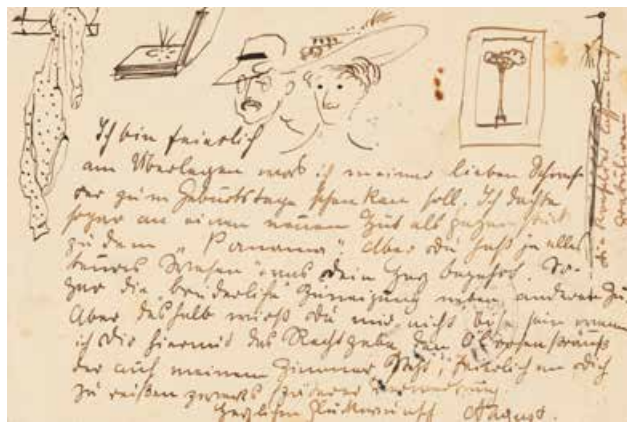 Ich bin feierlich
am Überlegen was ich meiner lieben Schwes-
ter zum Geburtstage schenken soll. Ich dachte
sogar an einen neuen Hut als gegenstück
zu dem „Panama“ Aber du hast ja alles
teures Wesen" was dein Herz begehrt. So-
gar die brüderliche Zuneigung neben anderen
Aber deshalb wirst du mir nicht böse sein wenn
ich dir hiermit das Recht gebe, den
der auf meinem Zimmer steht, feierlich an dich
zu reißen zwecks späterer Verwendung
Herzlichen Glückwunsch August.